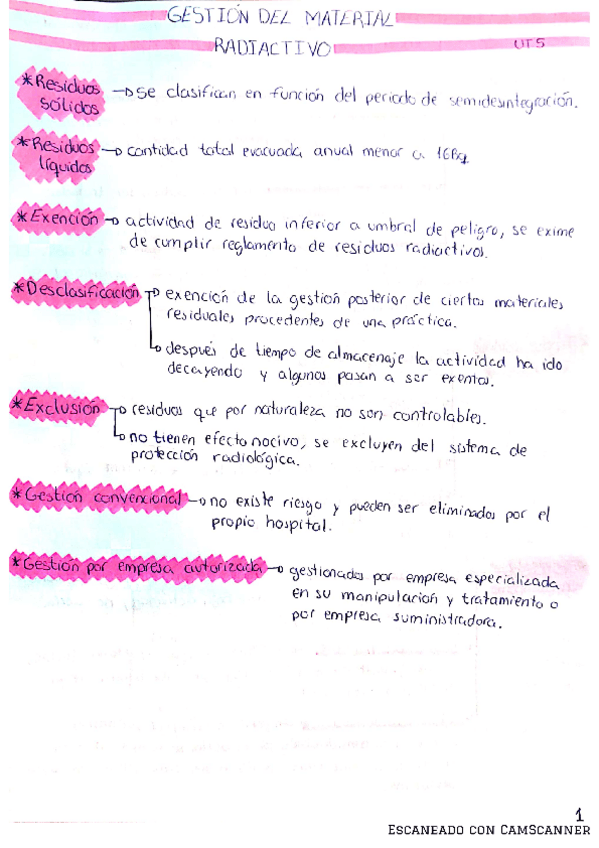 GESTIÓN DEL MATERIAL
RADIACTIVO
UT5
*Residuos
sólidos
→ se clasifican en función del periodo de semidesintegración.
*Residuos
líquidos
→ cantidad total evacuada anual menor a 1GBq
*Exención → actividad de residuo inferior a umbral de peligro, se exime
de cumplir reglamento de residuos radiactivos.
*Desclasificación → exención de la gestión posterior de ciertos materiales
residuales procedentes de una práctica.
→ después de tiempo de almacenaje la actividad ha ido
decayendo y algunos pasan a ser exentos.
*Exclusión → residuos que por naturaleza no son controlables.
→ no tienen efecto nocivo, se excluyen del sistema de
protección radiológica.
*Gestión convencional → no existe riesgo y pueden ser eliminados por el
propio hospital.
*Gestión por empresa autorizada → gestionados por empresa especializada
en su manipulación y tratamiento o
por empresa suministradora.
1
ESCANEADO CON CAMSCANNER